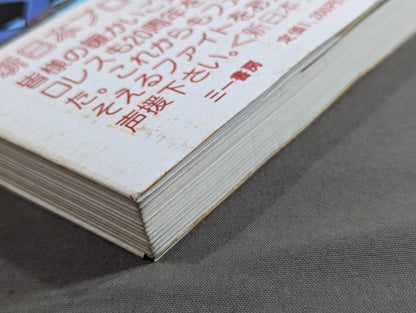 新日本プロ
皆様の暖かいご
ロレスも20周年を
た。これからもフ
そえるファイトをお
声援下さい。＜新日本
三一書房
定価1,200円